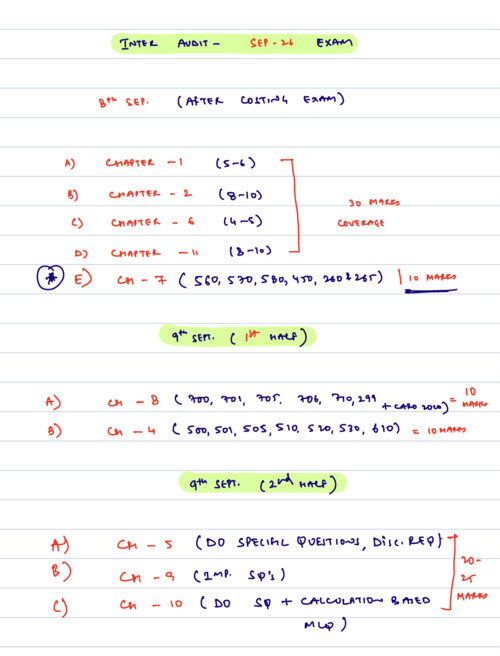 INTER AUDIT - SEP-26 EXAM
8th SEP. (AFTER COSTING EXAM)
A) CHAPTER - 1 (5-6)
B) CHAPTER - 2 (8-10)
C) CHAPTER - 6 (4-5)
D) CHAPTER - 11 (8-10)
30 MARKS
COVERAGE
* E) CH - 7 (560, 570, 580, 450, 260 & 265) 10 MARKS
9th SEPT. (1st HALF)
A) CH - 8 (700, 701, 705, 706, 710, 299 + CARO 2020) = 10 MARKS
B) CH - 4 (500, 501, 505, 510, 520, 530, 610) = 10 MARKS
9th SEPT. (2nd HALF)
A) CH - 5 (DO SPECIFIC QUESTIONS, DISC. REQ)
B) CH - 9 (IMP. SQ's)
C) CH - 10 (DO SQ + CALCULATION BASED
MCQ)
20-
25
MARKS